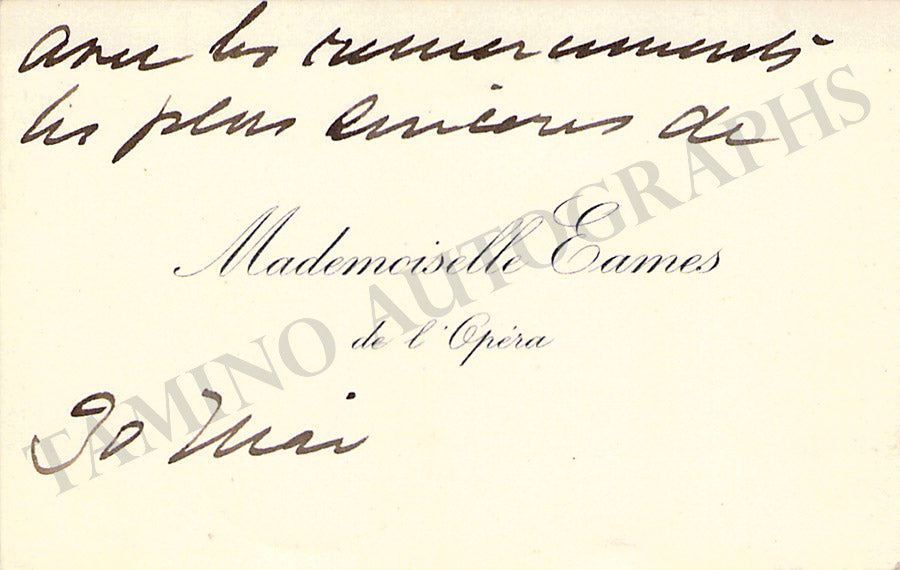 avec les remerciements
les plus sincères de
Mademoiselle Eames
de l'Opéra
30 Mai
TAMINO AUTOGRAPHS